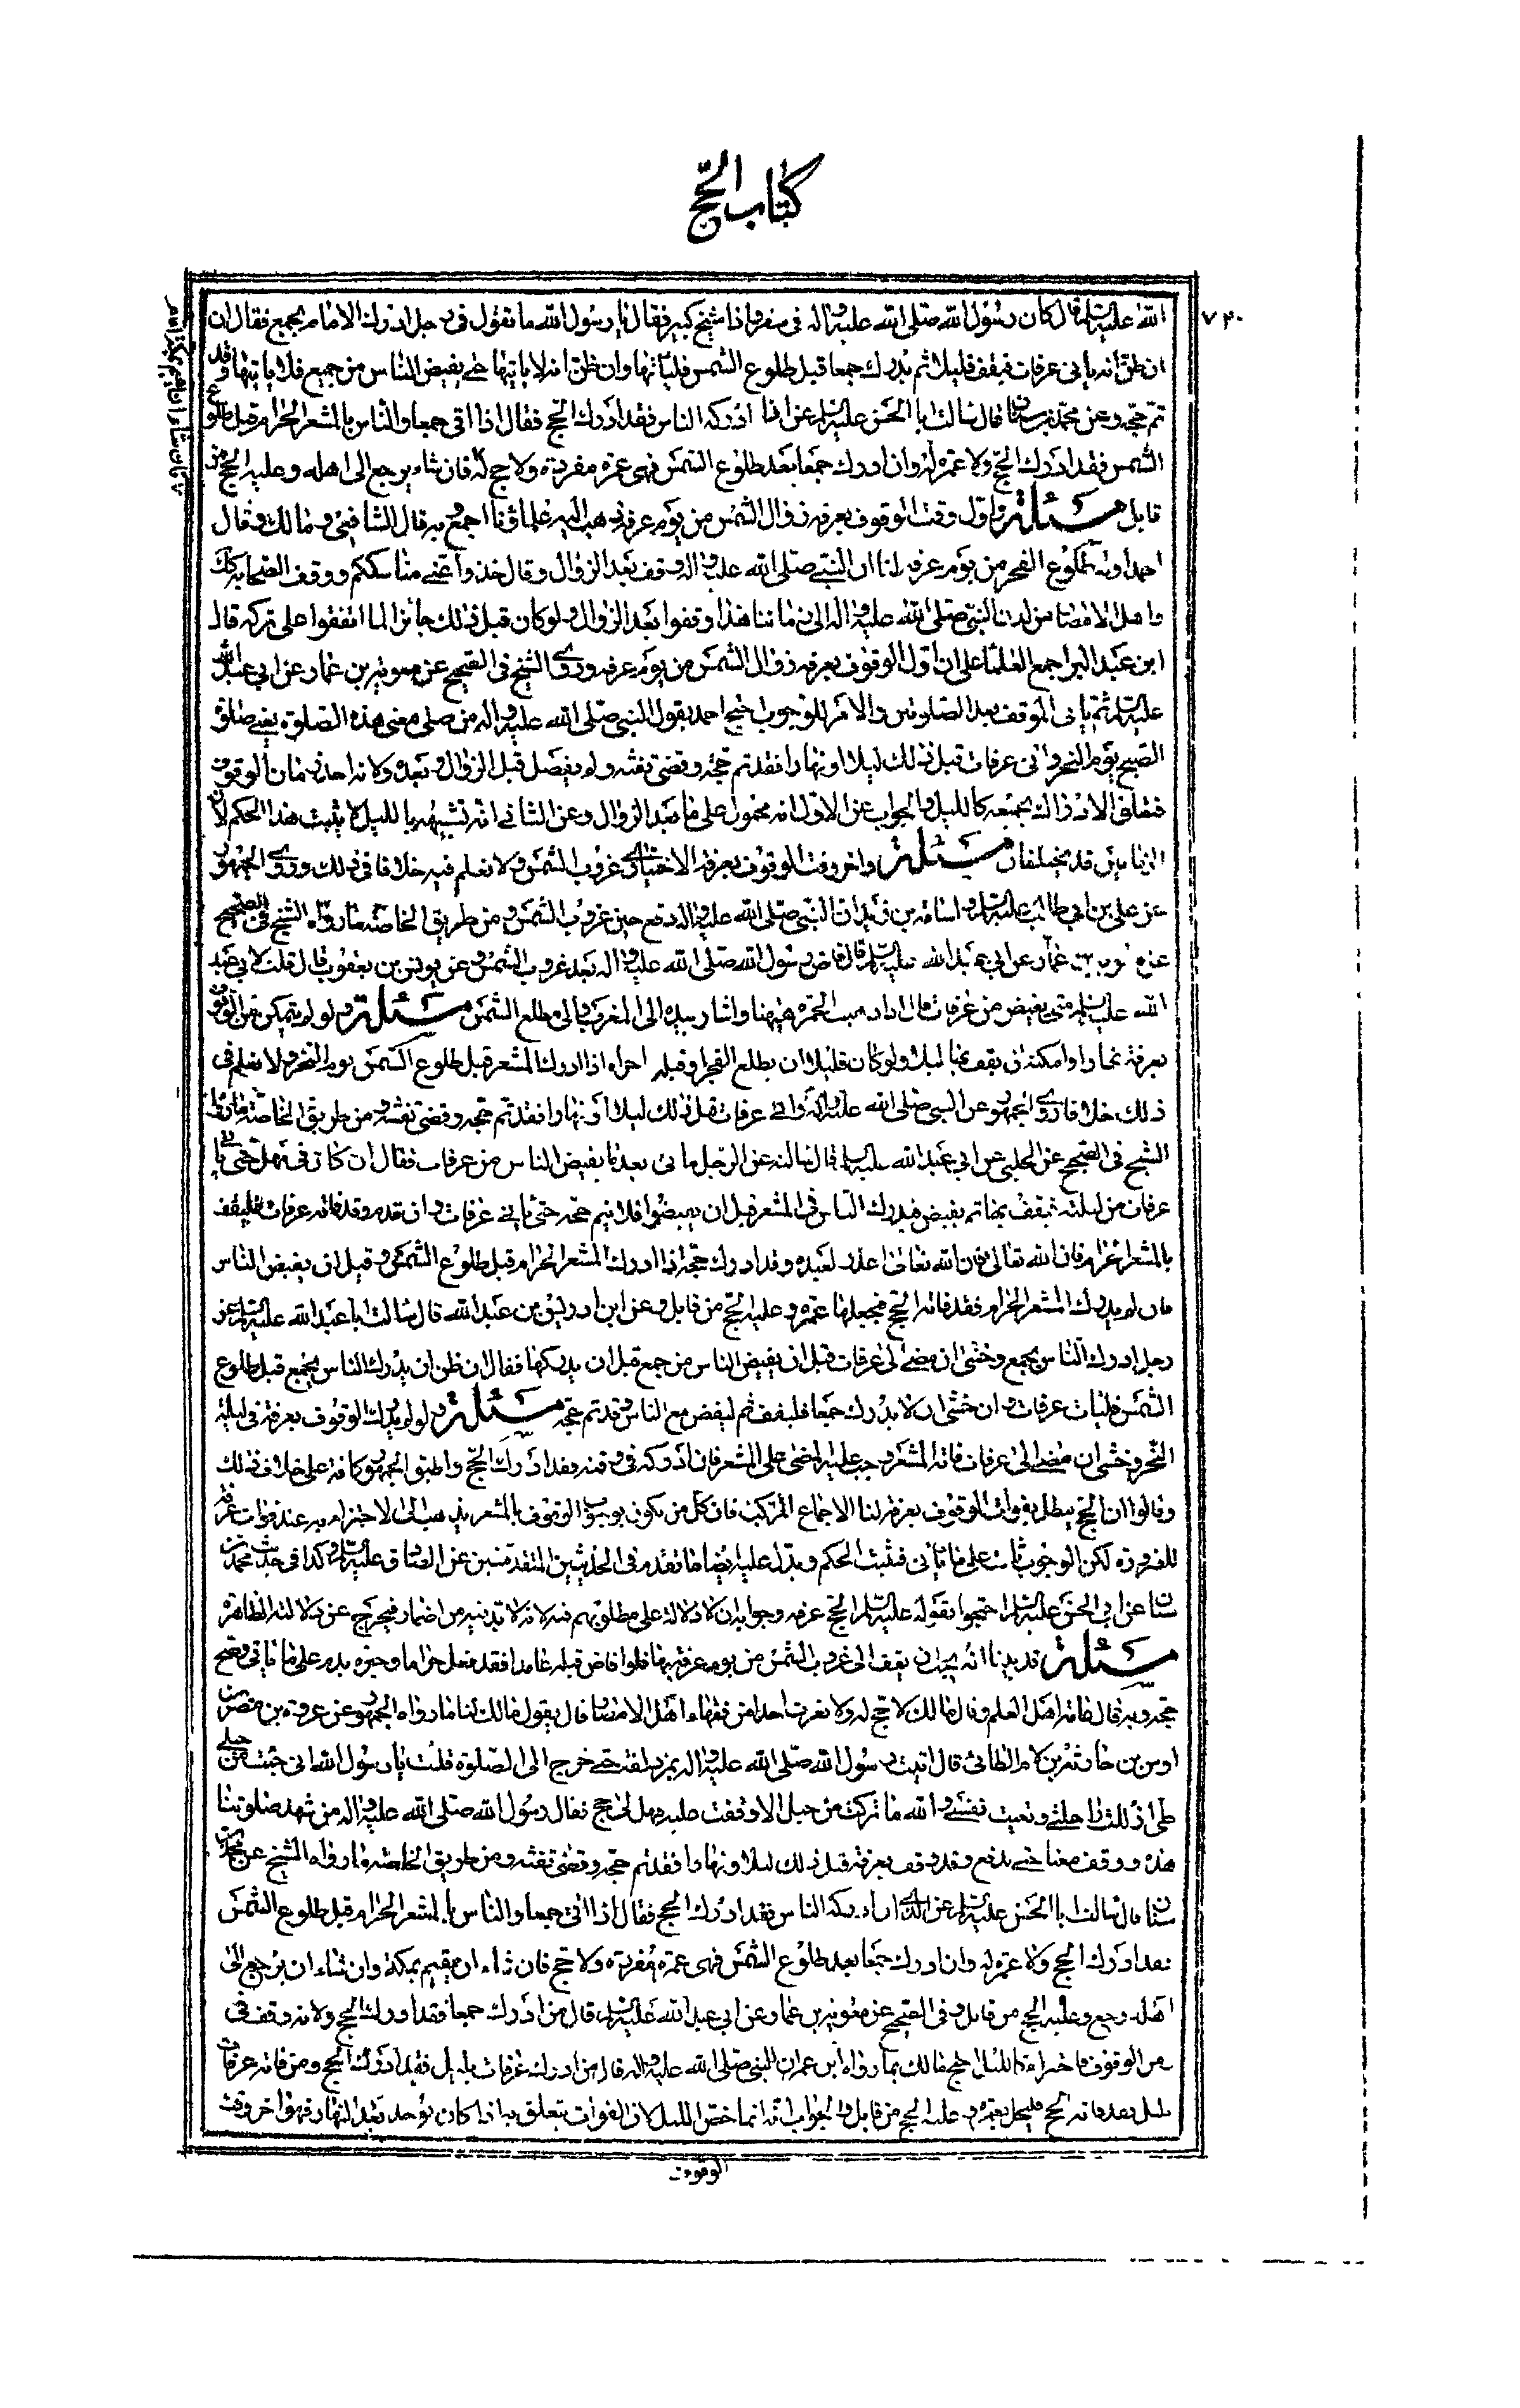 كتاب الحج
٧٢٠
الله عليه السلم قال كان رسول الله صلى الله عليه واله فى سفر واذا شيخ كبير فقال يا رسول الله ما تقول فى رجل ادرك الامام بجمع فقال ان
ان ظن انه ياتى عرفات فيقف قليلا ثم يدرك جمعا قبل طلوع الشمس فلياتها وان ظن انه لا ياتيها حتى يفيض الناس من جميع فلا ياتيها وقد
تم حجه وعن محمد بن سنان قال سالت ابا الحسن عليه السلم عن اذا ادركه الناس فقد ادرك الحج فقال اذا اتى جمعا والناس بالمشعر الحرام قبل طلوع
الشمس فقد ادرك الحج ولا عمرة له وان ادرك جمعا بعد طلوع الشمس فهى عمرة مفردة ولا حج له فان شاء يرجع الى اهله وعليه الحج من
قابل مسئلة واول وقت الوقوف بعرفة زوال الشمس من يوم عرفة ذهب اليه علماؤنا اجمع وبه قال الشافعى ومالك وقال
احمد اوله طلوع الفجر من يوم عرفة لنا ان النبى صلى الله عليه واله وقف بعد الزوال وقال خذوا عنى مناسككم ووقف الصحابة كذلك
واهل الامصار من لدن النبى صلى الله عليه واله الى زماننا هذا وقفوا بعد الزوال ولو كان قبل ذلك جائزا لما اتفقوا على تركه قال
ابن عبد البر اجمع العلماء على ان اول الوقوف بعرفة زوال الشمس من يوم عرفة وروى الشيخ فى الصحيح عن معوية بن عمار عن ابى عبد الله
عليه السلم ثم ياتى الموقف بعد الصلوتين والامر للوجوب احتج احمد بقول النبى صلى الله عليه واله من صلى معنى هذه الصلوة يعنى صلوة
الصبح يوم النحر واتى عرفات قبل ذلك ليلا او نهارا فقد تم حجه وقضى تفثه ولم يفصل قبل الزوال وبعده ولانه احد زمان الوقوف
فتعلق الادراك بجميعه كالليل والجواب عن الاول انه محمول على ما بعد الزوال وعن الثانى انه تشبيهه بالليل لا يثبت هذا الحكم لان
الزمانين قد يختلفان مسئلة واخر وقت الوقوف بعرفة الاختيارى غروب الشمس ولا نعلم فيه خلافا فى ذلك وروى الجمهور
عن على بن ابى طالب عليه السلم واسامة بن زيد ان النبى صلى الله عليه واله دفع حين غروب الشمس ومن طريق الخاصة ما رواه الشيخ فى الصحيح
عن معوية بن عمار عن ابى عبد الله عليه السلم قال افاض رسول الله صلى الله عليه واله بعد غروب الشمس وعن يونس بن يعقوب قال قلت لابى عبد
الله عليه السلم متى يفيض من عرفات قال اذا ذهبت الحمرة هيهنا واشار بيده الى المغرب والى مطلع الشمس مسئلة ولو لم يتمكن من الوقوف
بعرفة نهارا وامكنه ان يقف بها ليلا ولو كان قليلا ان يطلع الفجر وقبله اجزاه اذا ادرك المشعر قبل طلوع الشمس يوم النحر ولا نعلم فى
ذلك خلافا روى الجمهور عن النبى صلى الله عليه واله واتى عرفات قبل ذلك ليلا او نهارا فقد تم حجه وقضى تفثه ومن طريق الخاصة ما رواه
الشيخ فى الصحيح عن الحلبى عن ابى عبد الله عليه السلم قال سالته عن الرجل ياتى بعد ما يفيض الناس من عرفات فقال ان كان فى مهل حتى ياتى
عرفات من ليلته فيقف بها ثم يفيض فيدرك الناس فى المشعر قبل ان يفيضوا فلا يتم حجه حتى ياتى عرفات وان قدم وقد فاته عرفات فليقف
بالمشعر الحرام فان الله تعالى اعذر لعبده وقد ادرك حجه اذا ادرك المشعر الحرام قبل طلوع الشمس وقبل ان يفيض الناس
فان لم يدرك المشعر الحرام فقد فاته الحج فيجعلها عمرة وعليه الحج من قابل وعن ادريس بن عبد الله قال سالت ابا عبد الله عليه السلم عن
رجل ادرك الناس بجمع وخشى ان مضى الى عرفات قبل ان يفيض الناس من جمع قبل ان يدركها فقال ان ظن ان يدرك الناس بجمع قبل طلوع
الشمس فليات عرفات وان خشى ان لا يدرك جمعا فليقف ثم ليفض مع الناس وقد تم حجه مسئلة ولو لم يدرك الوقوف بعرفة فى ليلة
النحر وخشى ان مضى الى عرفات فاته المشعر وجب عليه المضى الى المشعر فان ادركه فى وقته فقد ادرك الحج واطبق الجمهور كافة على خلاف ذلك
وقالوا ان الحج يبطل بفوات الوقوف بعرفة لنا الاجماع المركب فان كل من يكون بوجوب الوقوف بالمشعر يذهب الى الاجتزاء به عند فوات عرفة
للضرورة لكن الوجوب ثابت على ما ياتى فثبت الحكم ويدل عليه ايضا ما تقدم فى الحديثين المتقدمين عن الصادق عليه السلم وكذا فى حديث محمد بن
سنان عن ابى الحسن عليه السلم احتجوا بقوله عليه السلم الحج عرفة وجوابه ان لا دلالة على مطلوبهم فيه لانه لا بد فيه من اضمار فيخرج عن دلالته الظاهرة
مسئلة قد بينا انه يجب ان يقف الى غروب الشمس من يوم عرفة بها فلو افاض قبله عامدا فقد فعل حراما وجبره بدم على ما ياتى وصح
حجه وبه قال عامة اهل العلم وقال مالك لا حج له ولا نعرف احدا من فقهاء اهل الامصار قال بقول مالك لنا ما رواه الجمهور عن عروة بن مضرس بن
اوس بن حارثة بن لام الطائى قال اتيت رسول الله صلى الله عليه واله بمزدلفة حتى خرج الى الصلوة فقلت يا رسول الله انى جئت من جبلى
طى اكللت راحلتى وتعبت نفسى والله ما تركت من جبل الا وقفت عليه فهل لى حج فقال رسول الله صلى الله عليه واله من شهد صلوتنا
هذه ووقف معنا حتى يدفع وقد وقف بعرفة قبل ذلك ليلا ونهارا فقد تم حجه وقضى تفثه ومن طريق الخاصة ما رواه الشيخ عن محمد بن
سنان قال سالت ابا الحسن عليه السلم عن الذى اذا ادركه الناس فقد ادرك الحج فقال اذا اتى جمعا والناس بالمشعر الحرام قبل طلوع الشمس
فقد ادرك الحج ولا عمرة له وان ادرك جمعا بعد طلوع الشمس فهى عمرة مفردة ولا حج فان شاء ان يقيم بمكة وان شاء ان يرجع الى
اهله رجع وعليه الحج من قابل وفى الصحيح عن معوية بن عمار عن ابى عبد الله عليه السلم قال من ادرك جمعا فقد ادرك الحج ولانه وقف فى
زمن الوقوف فاجزاه كالليل احتج مالك بما رواه ابن عمر ان النبى صلى الله عليه واله قال من ادرك عرفات بليل فقد ادرك الحج ومن فاته عرفات
بليل فقد فاته الحج فليحل بعمرة وعليه الحج من قابل والجواب انه انما خص الليل لان الفوات يتعلق به اذا كان يوجد بعد النهار فهو اخر وقت
الوقوف